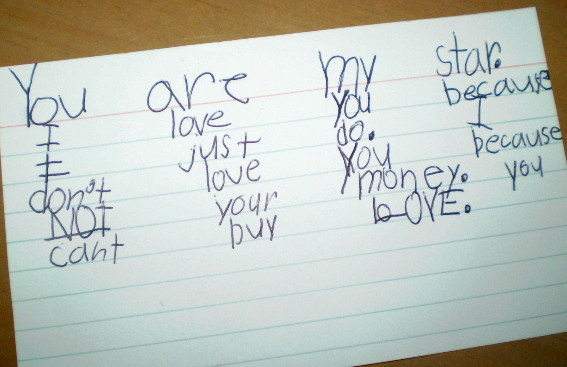 You are my star.
I love you because
I just do. I
don't love you because
NOT your money. you
can't buy LOVE.